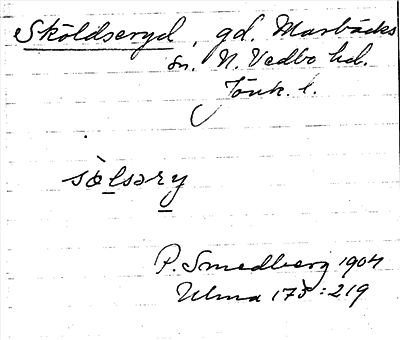 Sköldseryd, gd. Marbäcks
sn. N. Vedbo hd.
Jönk. l.
sȯlsəry
P. Smedberg 1904
Ulma 175:219